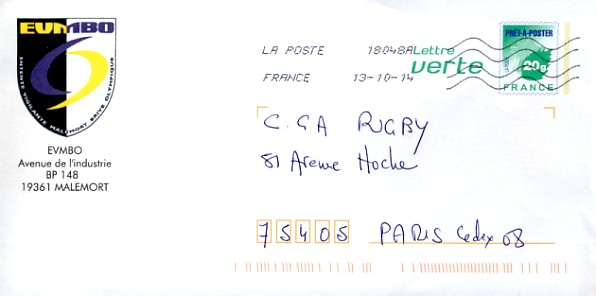 EVMBO
ENTENTE VIGILANTE MALEMORT BRIVE OLYMPIQUE
EVMBO
Avenue de l'industrie
BP 148
19361 MALEMORT
LA POSTE 18048A
FRANCE 13-10-14
Lettre
verte
PRÊT-À-POSTER
20g
FRANCE
C.GA RUGBY
81 Avenue Hoche
75405 PARIS Cedex 08